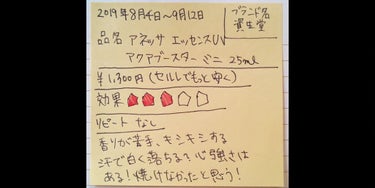 2019年8月4日〜9月12日
ブランド名
資生堂
品名 アネッサ エッセンスUV
アクアブースター ミニ 25ml
¥1,300円(セルしでもっとゆく)
効果
リピート なし
香りが苦手、キシキシする
汗で白く落ちる?心強さは
ある!焼けなかったと思う!